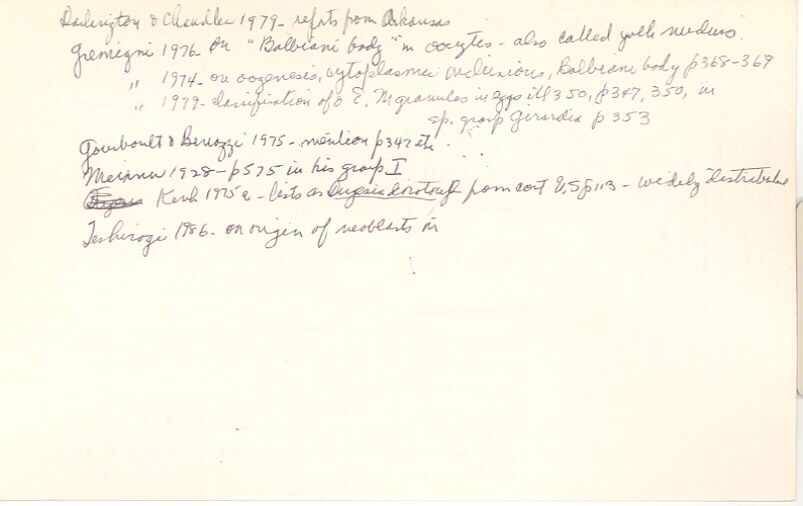 Darlington & Chandler 1979- reforts from Arkansas
Gremigni 1976 on "Balbiani body" in oocytes - also called yolk nucleus.
" 1974- on oogenesis, cytoplasmic inclusions, Balbiani body p368-369
" 1979- classification of E, M granules in eggs ill 350, p347, 350, in
sp. group Girardia p353
Gourbault & Benazzi 1975- mention p342 etc.
Meixner 1928- p575 in his group I
Kenk 1975a - lists as Dugesia dorotoceph from east U,S p113 - widely distributed
Teshirogi 1986- on origin of neoblasts in